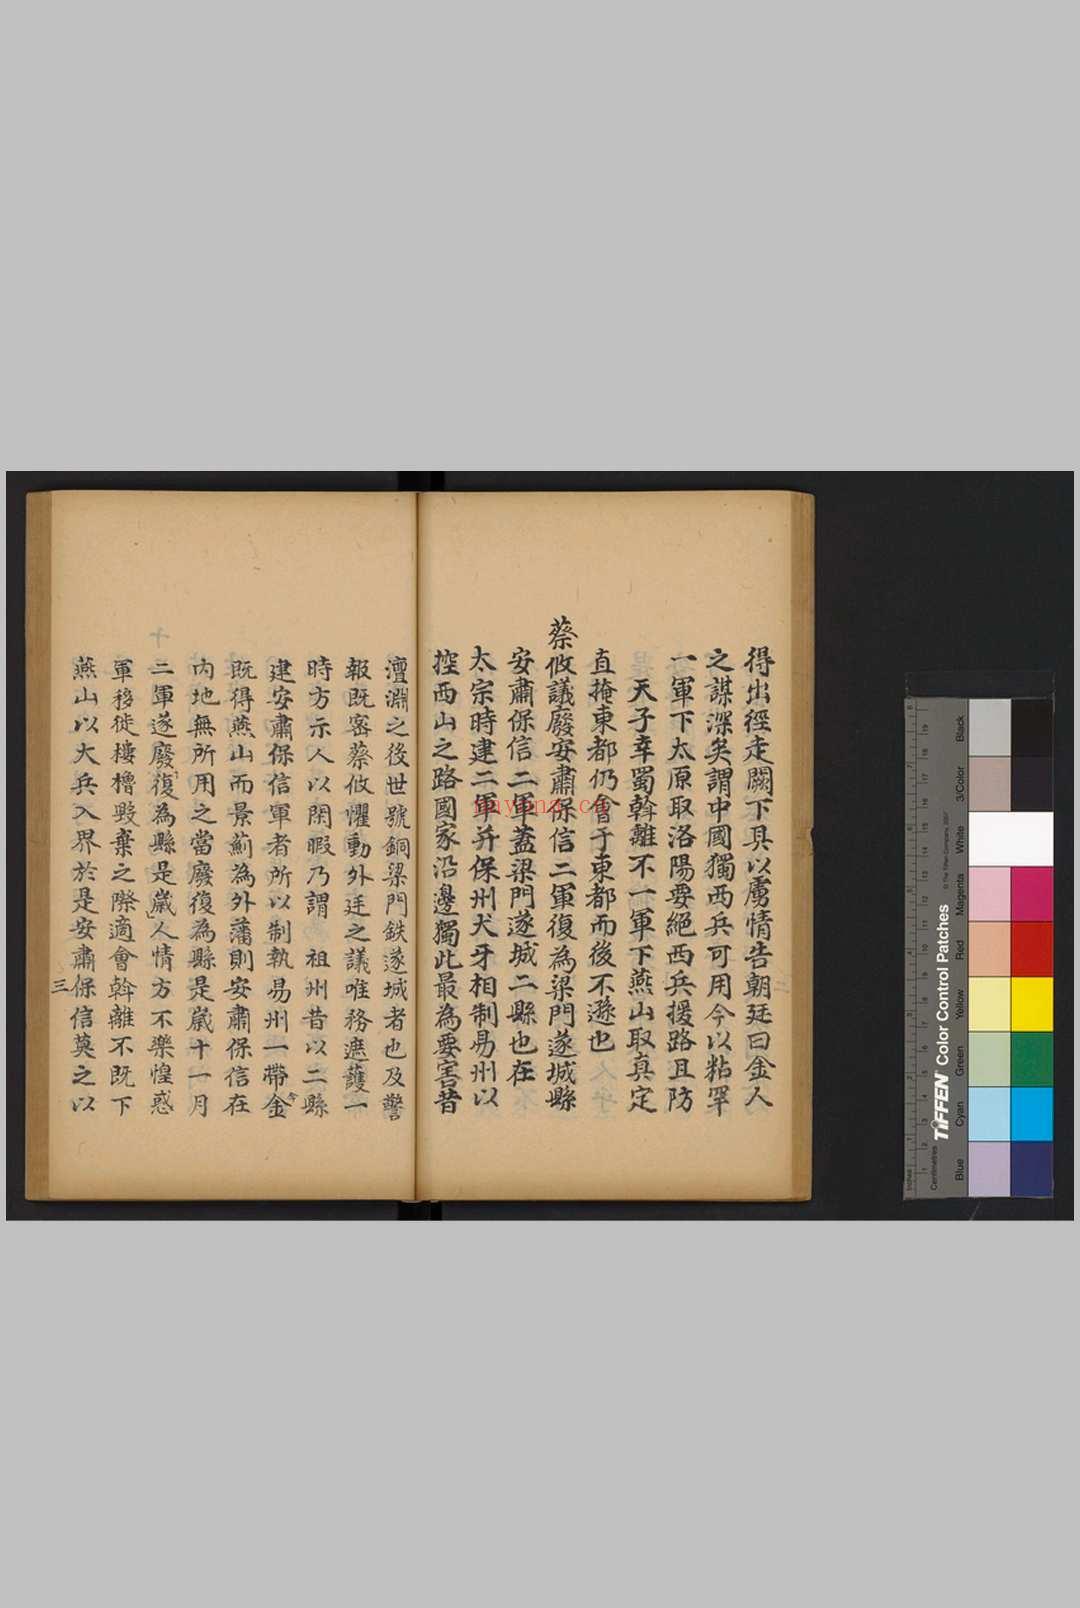 得出徑走闕下具以虜情告朝廷曰金人
之謀深矣謂中國獨西兵可用今以粘罕
一軍下太原取洛陽要絕西兵援路且防
天子幸蜀斡離不一軍下燕山取真定
直掩東都仍會于東都而後不遜也
蔡攸議廢安肅保信二軍復為梁門遂城縣
安肅保信二軍蓋梁門遂城二縣也在
太宗時建二軍并保州犬牙相制易州以
控西山之路國家沿邊獨此最為要害昔
澶淵之後世號銅梁門鉄遂城者也及警
報既密蔡攸懼動外廷之議唯務遮護一
時方示人以閑暇乃謂 祖州昔以二縣
建安肅保信軍者所以制執易州一帶金
既得燕山而景薊為外藩則安肅保信在
内地無所用之當廢復為縣是嵗十一月
二軍遂廢復為縣是嵗人情方不樂惶惑
軍移徙樓櫓毀棄之際適會斡離不既下
燕山以大兵入界於是安肅保信莫之以
三
Black
3/Color
White
Magenta
Red
Yellow
Green
Cyan
Blue
TIFFEN Color Control Patches
© The Tiffen Company, 2007
Centimetres
Inches